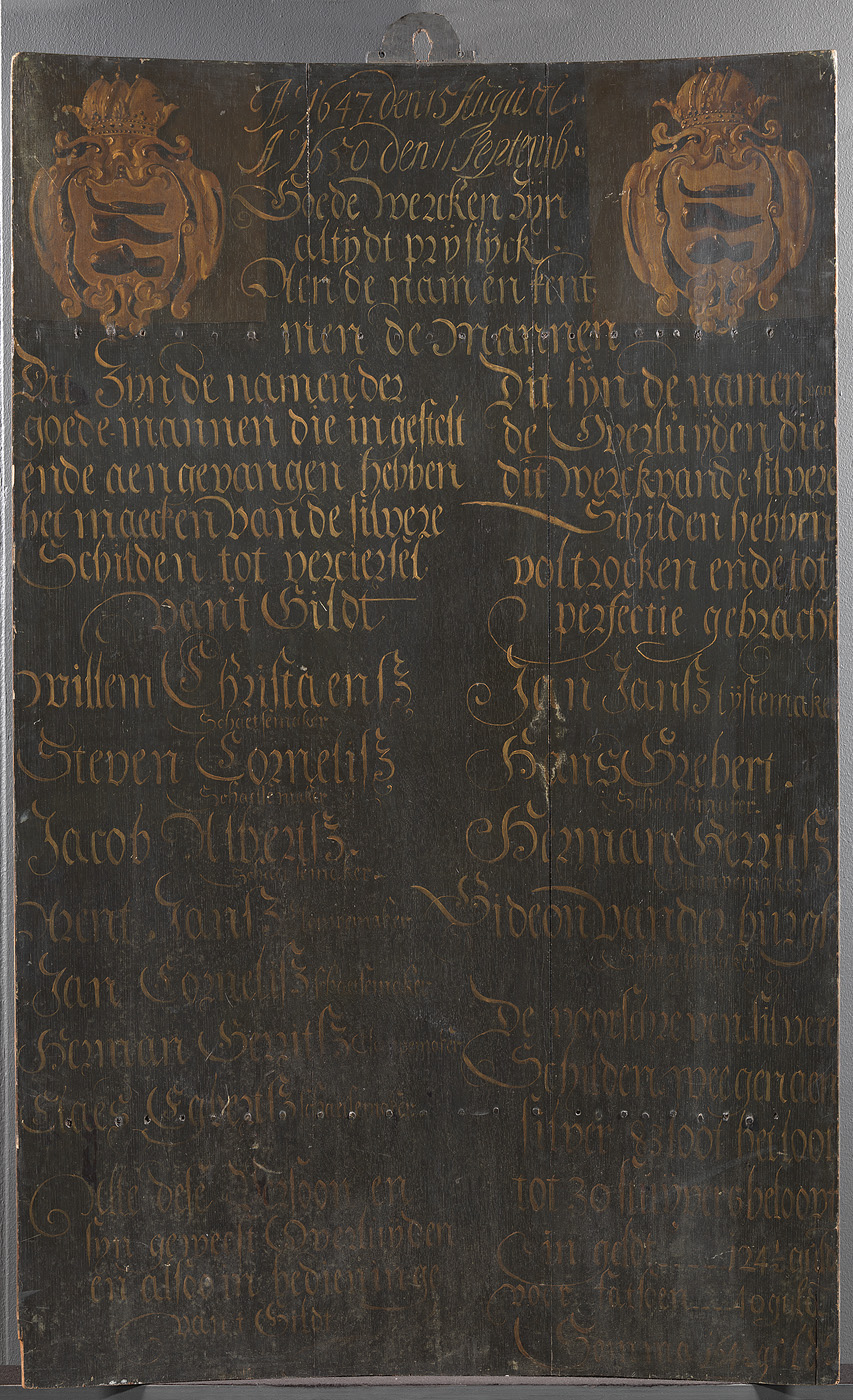 A° 1647 den 15 Augusti
A° 1650 den 11 Septemb.
Goede wercken Zijn
altijdt prijslijck.
Aen de namen kent
men de Mannen
Dit Zijn de namen der
goede mannen die ingestelt
ende aengevangen hebben
het maecken van de silvere
Schilden tot verciersel
van't Gildt
Willem Christaensz
Schaetsemaker
Steven Cornelisz
Schaetsemaker
Jacob Albertsz.
Schaetsemaker
Arent Jansz
Jan Cornelisz Schaetsemaker
Herman Gerritsz
Claes Egbertsz Schaetsemaker
Alle dese en
sijn geweest Overluijden
en alsdoen bedieninge
van't Gildt
Dit sijn de namen van
de Overluijden die
dit Werck vande silvere
Schilden hebben
voltrocken ende tot
perfectie gebracht
Jan Jansz Lijstemaker
Hans Grebert.
Schaetsemaker.
Herman Gerritsz
Gideon vander burgh
De voorschreven silvere
Schilden weegen aen
silver 83 loot het loot
tot 30 stuyvers beloopt
in geldt 124½
voor faitsoen 10 guld
Somma